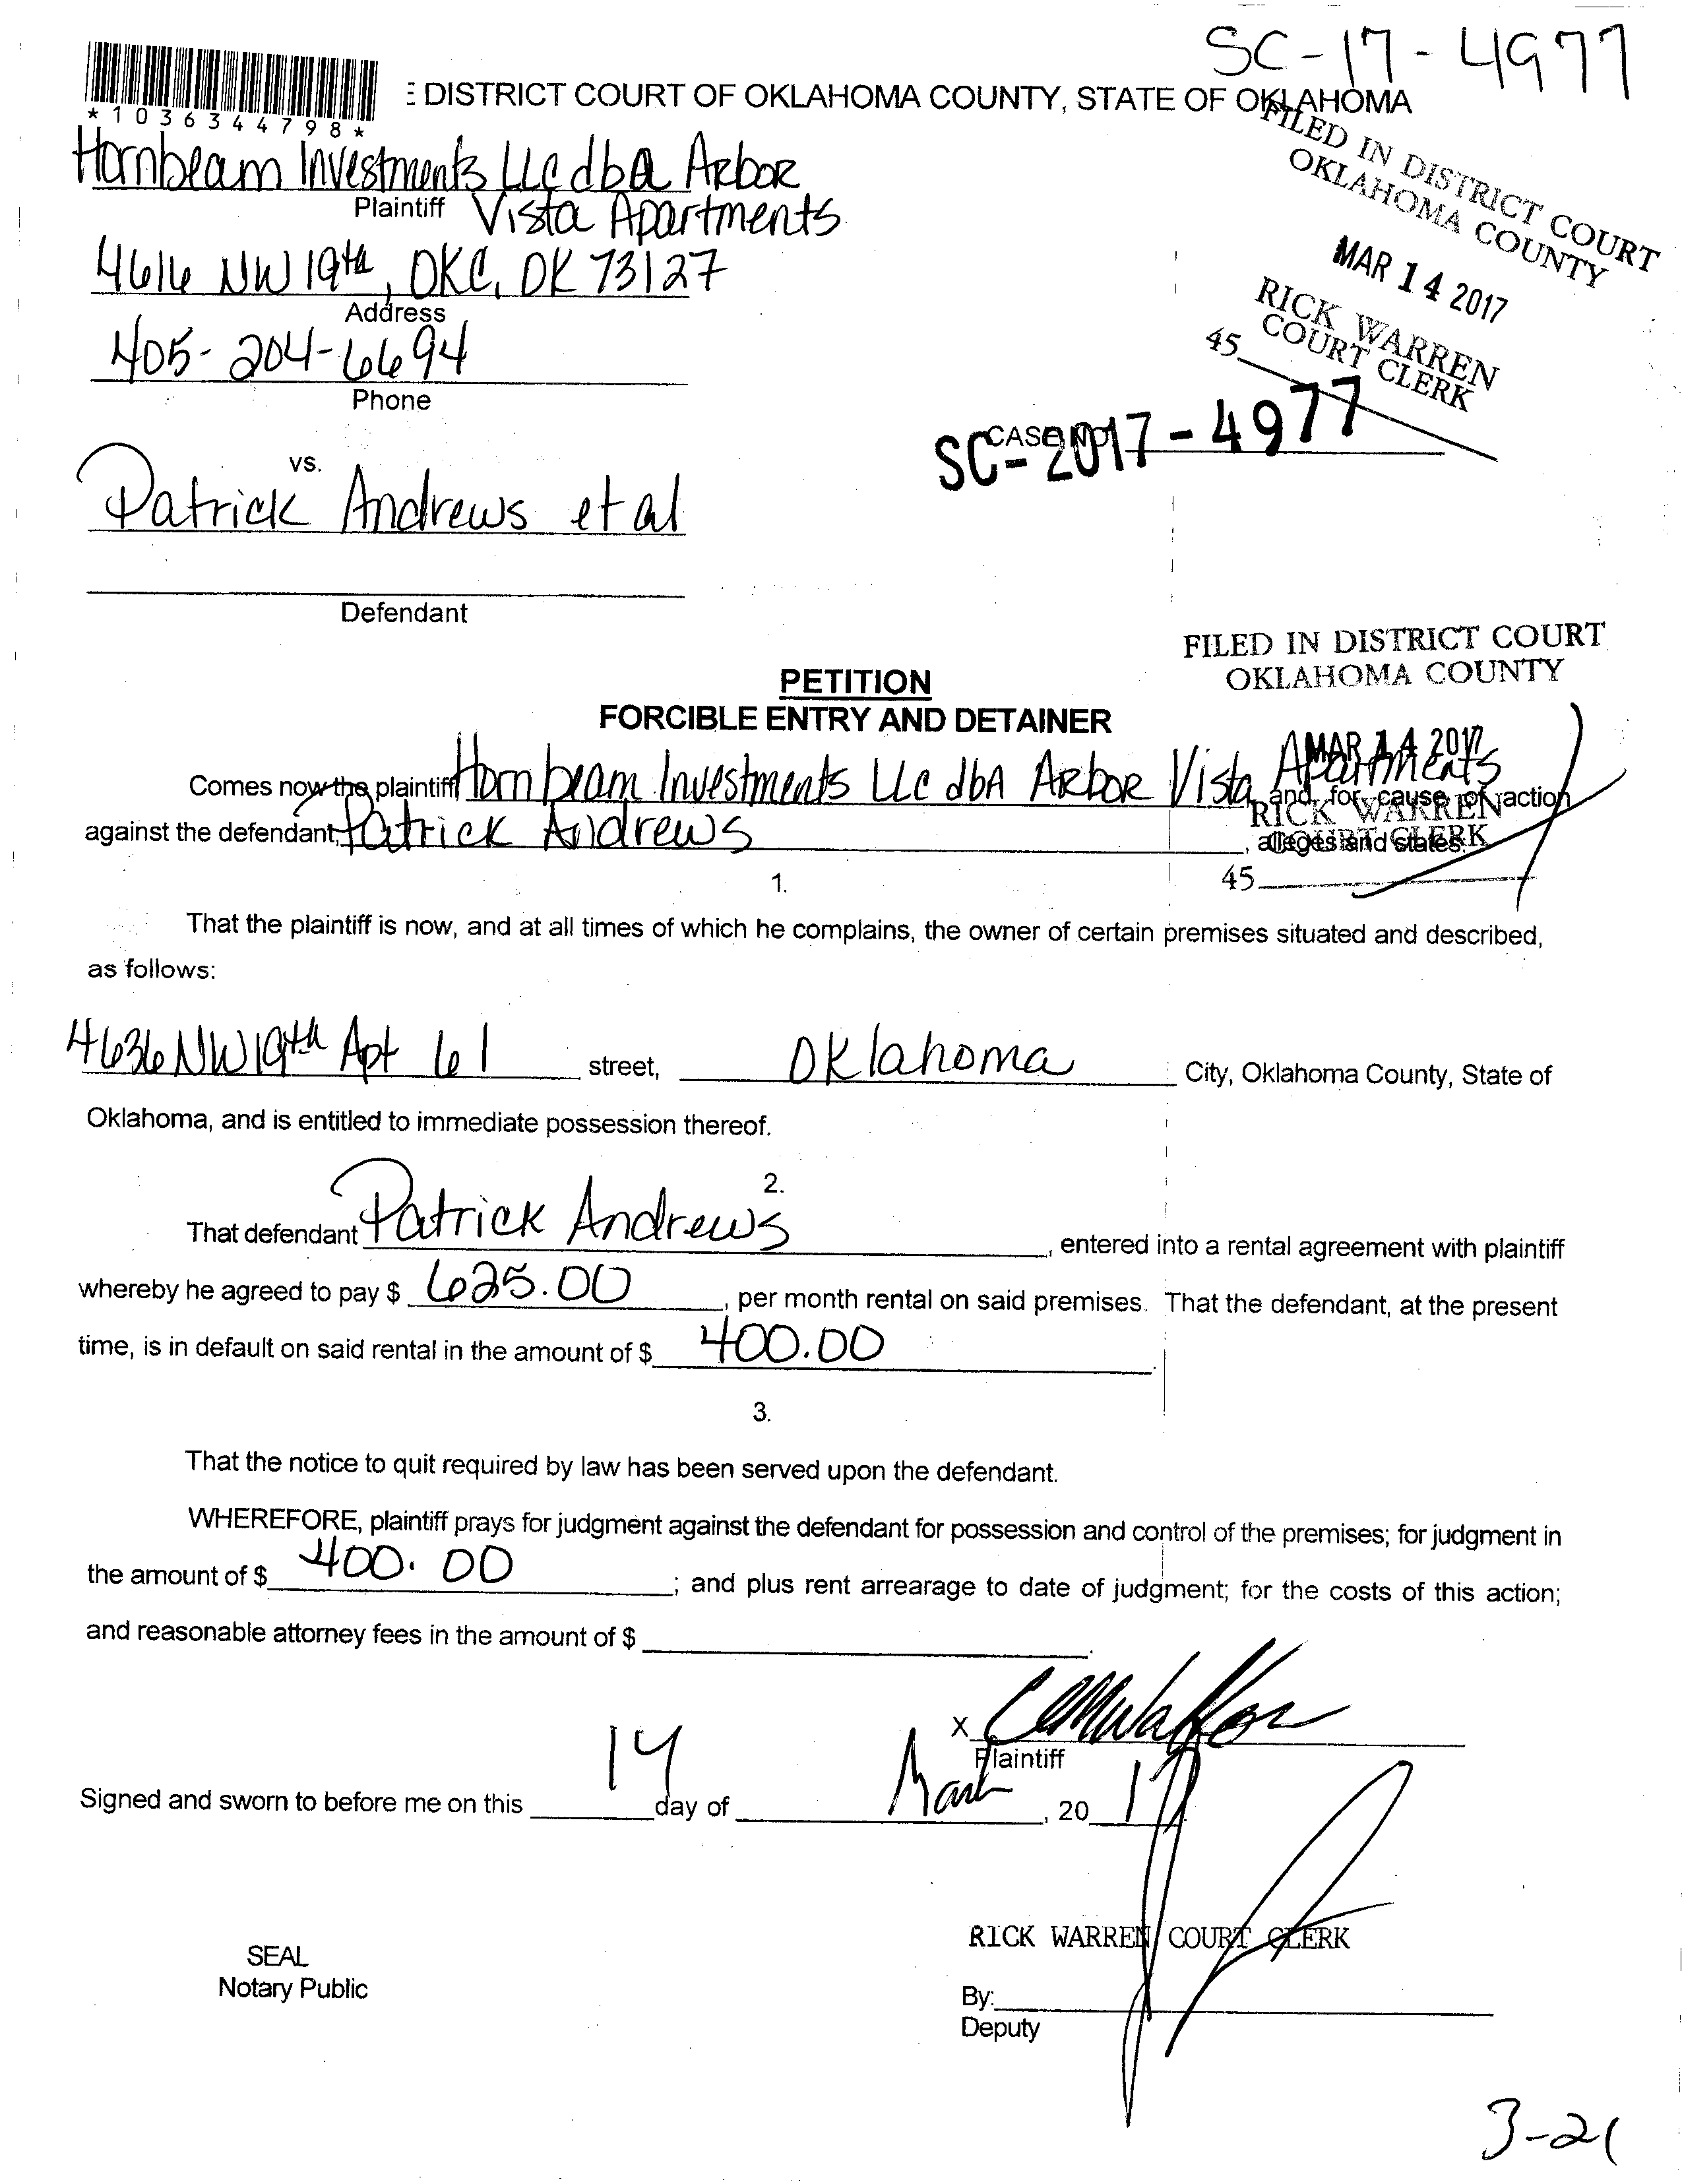 SC-17-4977
*1036344798*
E DISTRICT COURT OF OKLAHOMA COUNTY, STATE OF OKLAHOMA
FILED IN DISTRICT COURT
OKLAHOMA COUNTY
Hornbeam Investments LLC dba Arbor
Plaintiff Vista Apartments
MAR 14 2017
4616 NW 19th, OKC, OK 73127
Address
RICK WARREN
COURT CLERK
45
405-204-6694
Phone
CASE NO.
SC-2017-4977
vs.
Patrick Andrews et al
Defendant
FILED IN DISTRICT COURT
OKLAHOMA COUNTY
PETITION
FORCIBLE ENTRY AND DETAINER
MAR 14 2017
Comes now the plaintiff Hornbeam Investments LLC dbA Arbor Vista Apartments and for cause of action
RICK WARREN
against the defendant, Patrick Andrews, alleges and states:
COURT CLERK
45
1.
That the plaintiff is now, and at all times of which he complains, the owner of certain premises situated and described,
as follows:
4636 NW 19th Apt 61 street, Oklahoma City, Oklahoma County, State of
Oklahoma, and is entitled to immediate possession thereof.
2.
That defendant Patrick Andrews, entered into a rental agreement with plaintiff
whereby he agreed to pay $ 625.00, per month rental on said premises. That the defendant, at the present
time, is in default on said rental in the amount of $ 400.00.
3.
That the notice to quit required by law has been served upon the defendant.
WHEREFORE, plaintiff prays for judgment against the defendant for possession and control of the premises; for judgment in
the amount of $ 400.00; and plus rent arrearage to date of judgment; for the costs of this action;
and reasonable attorney fees in the amount of $ .
X
Plaintiff
Signed and sworn to before me on this 14 day of March, 2017
RICK WARREN COURT CLERK
SEAL
Notary Public
By:
Deputy
3-21